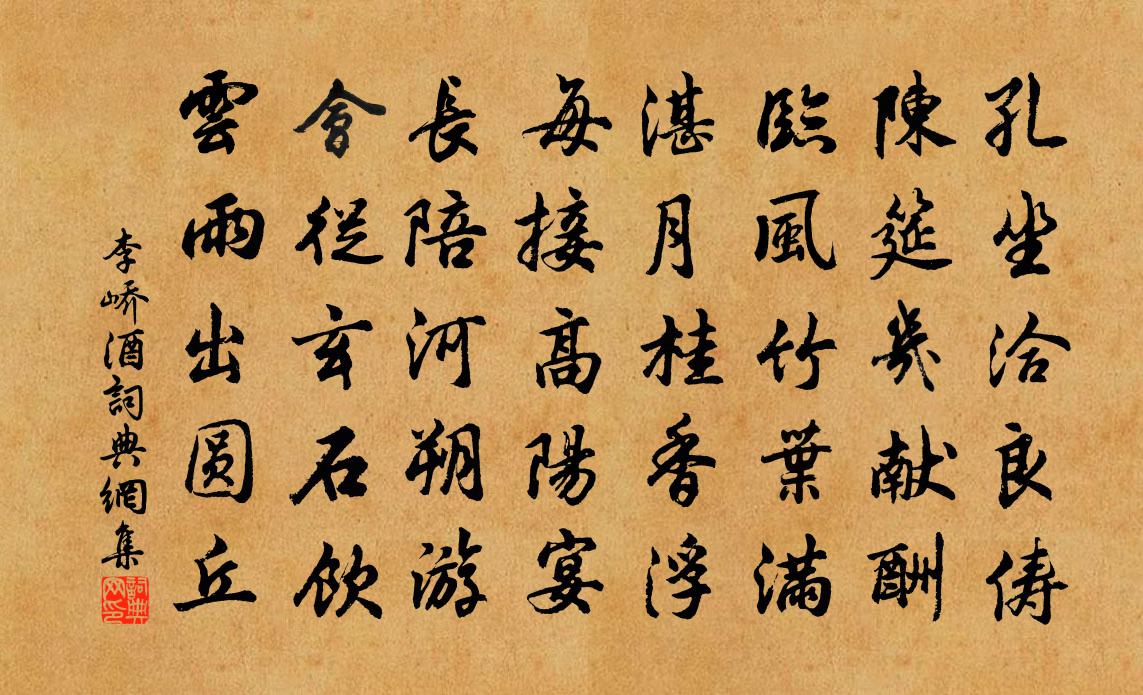 孔坐洽良儔
陳筵幾献酬
臨風竹葉滿
湛月桂香浮
每接高陽宴
長陪河朔游
會從玄石飲
雲雨出圆丘
李峤酒詞典網集
詞典网印